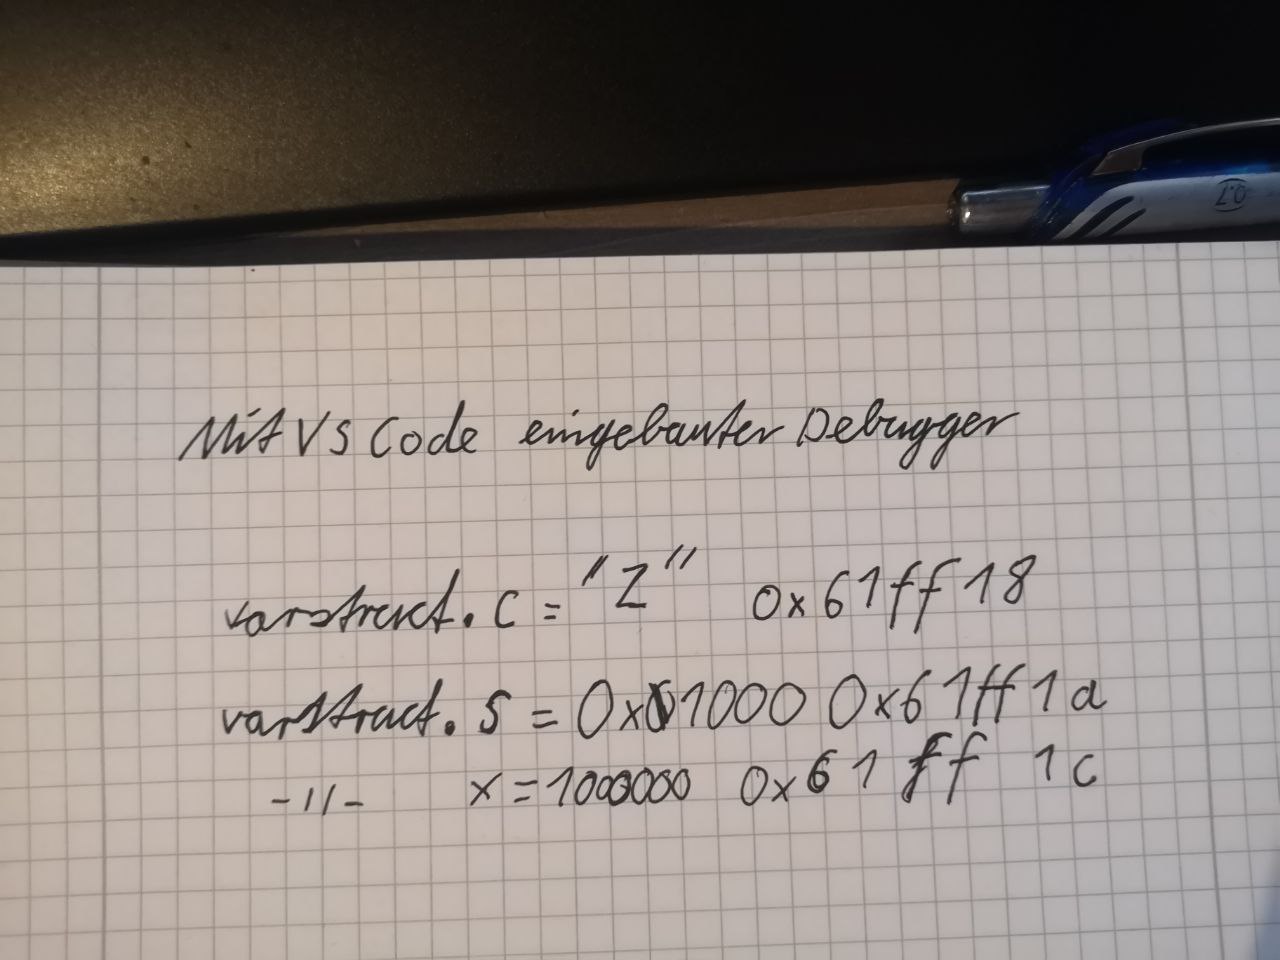 Mit VS Code eingebauter Debugger
varstruct.c = "Z" 0x61ff18
varstruct.s = 0x01000 0x61ff1a
-11- x = 1000000 0x61ff1c
0.7